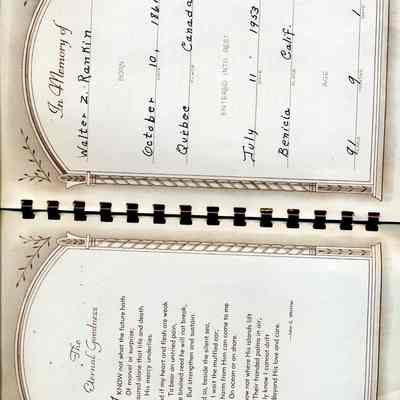 The
Eternal Goodness
KNOW not what the future hath
Of marvel or surprise,
alone that life and death
His mercy underlies.
if my heart and flesh are weak
To bear an untried pain,
bruised reed he will not break,
But strengthen and sustain.
so, beside the silent sea,
I wait the muffled oar;
harm from Him can come to me
On ocean or on shore.
not where His islands lift
Their fronded palms in air;
know I cannot drift
Beyond His love and care.
—John G. Whittier
In Memory of
Walter Z. Rankin
BORN
October 10, 1861
DATE
Quebec Canada
PLACE
ENTERED INTO REST
July 11 1953
DATE
Benicia Calif.
PLACE
AGE
91 9 1